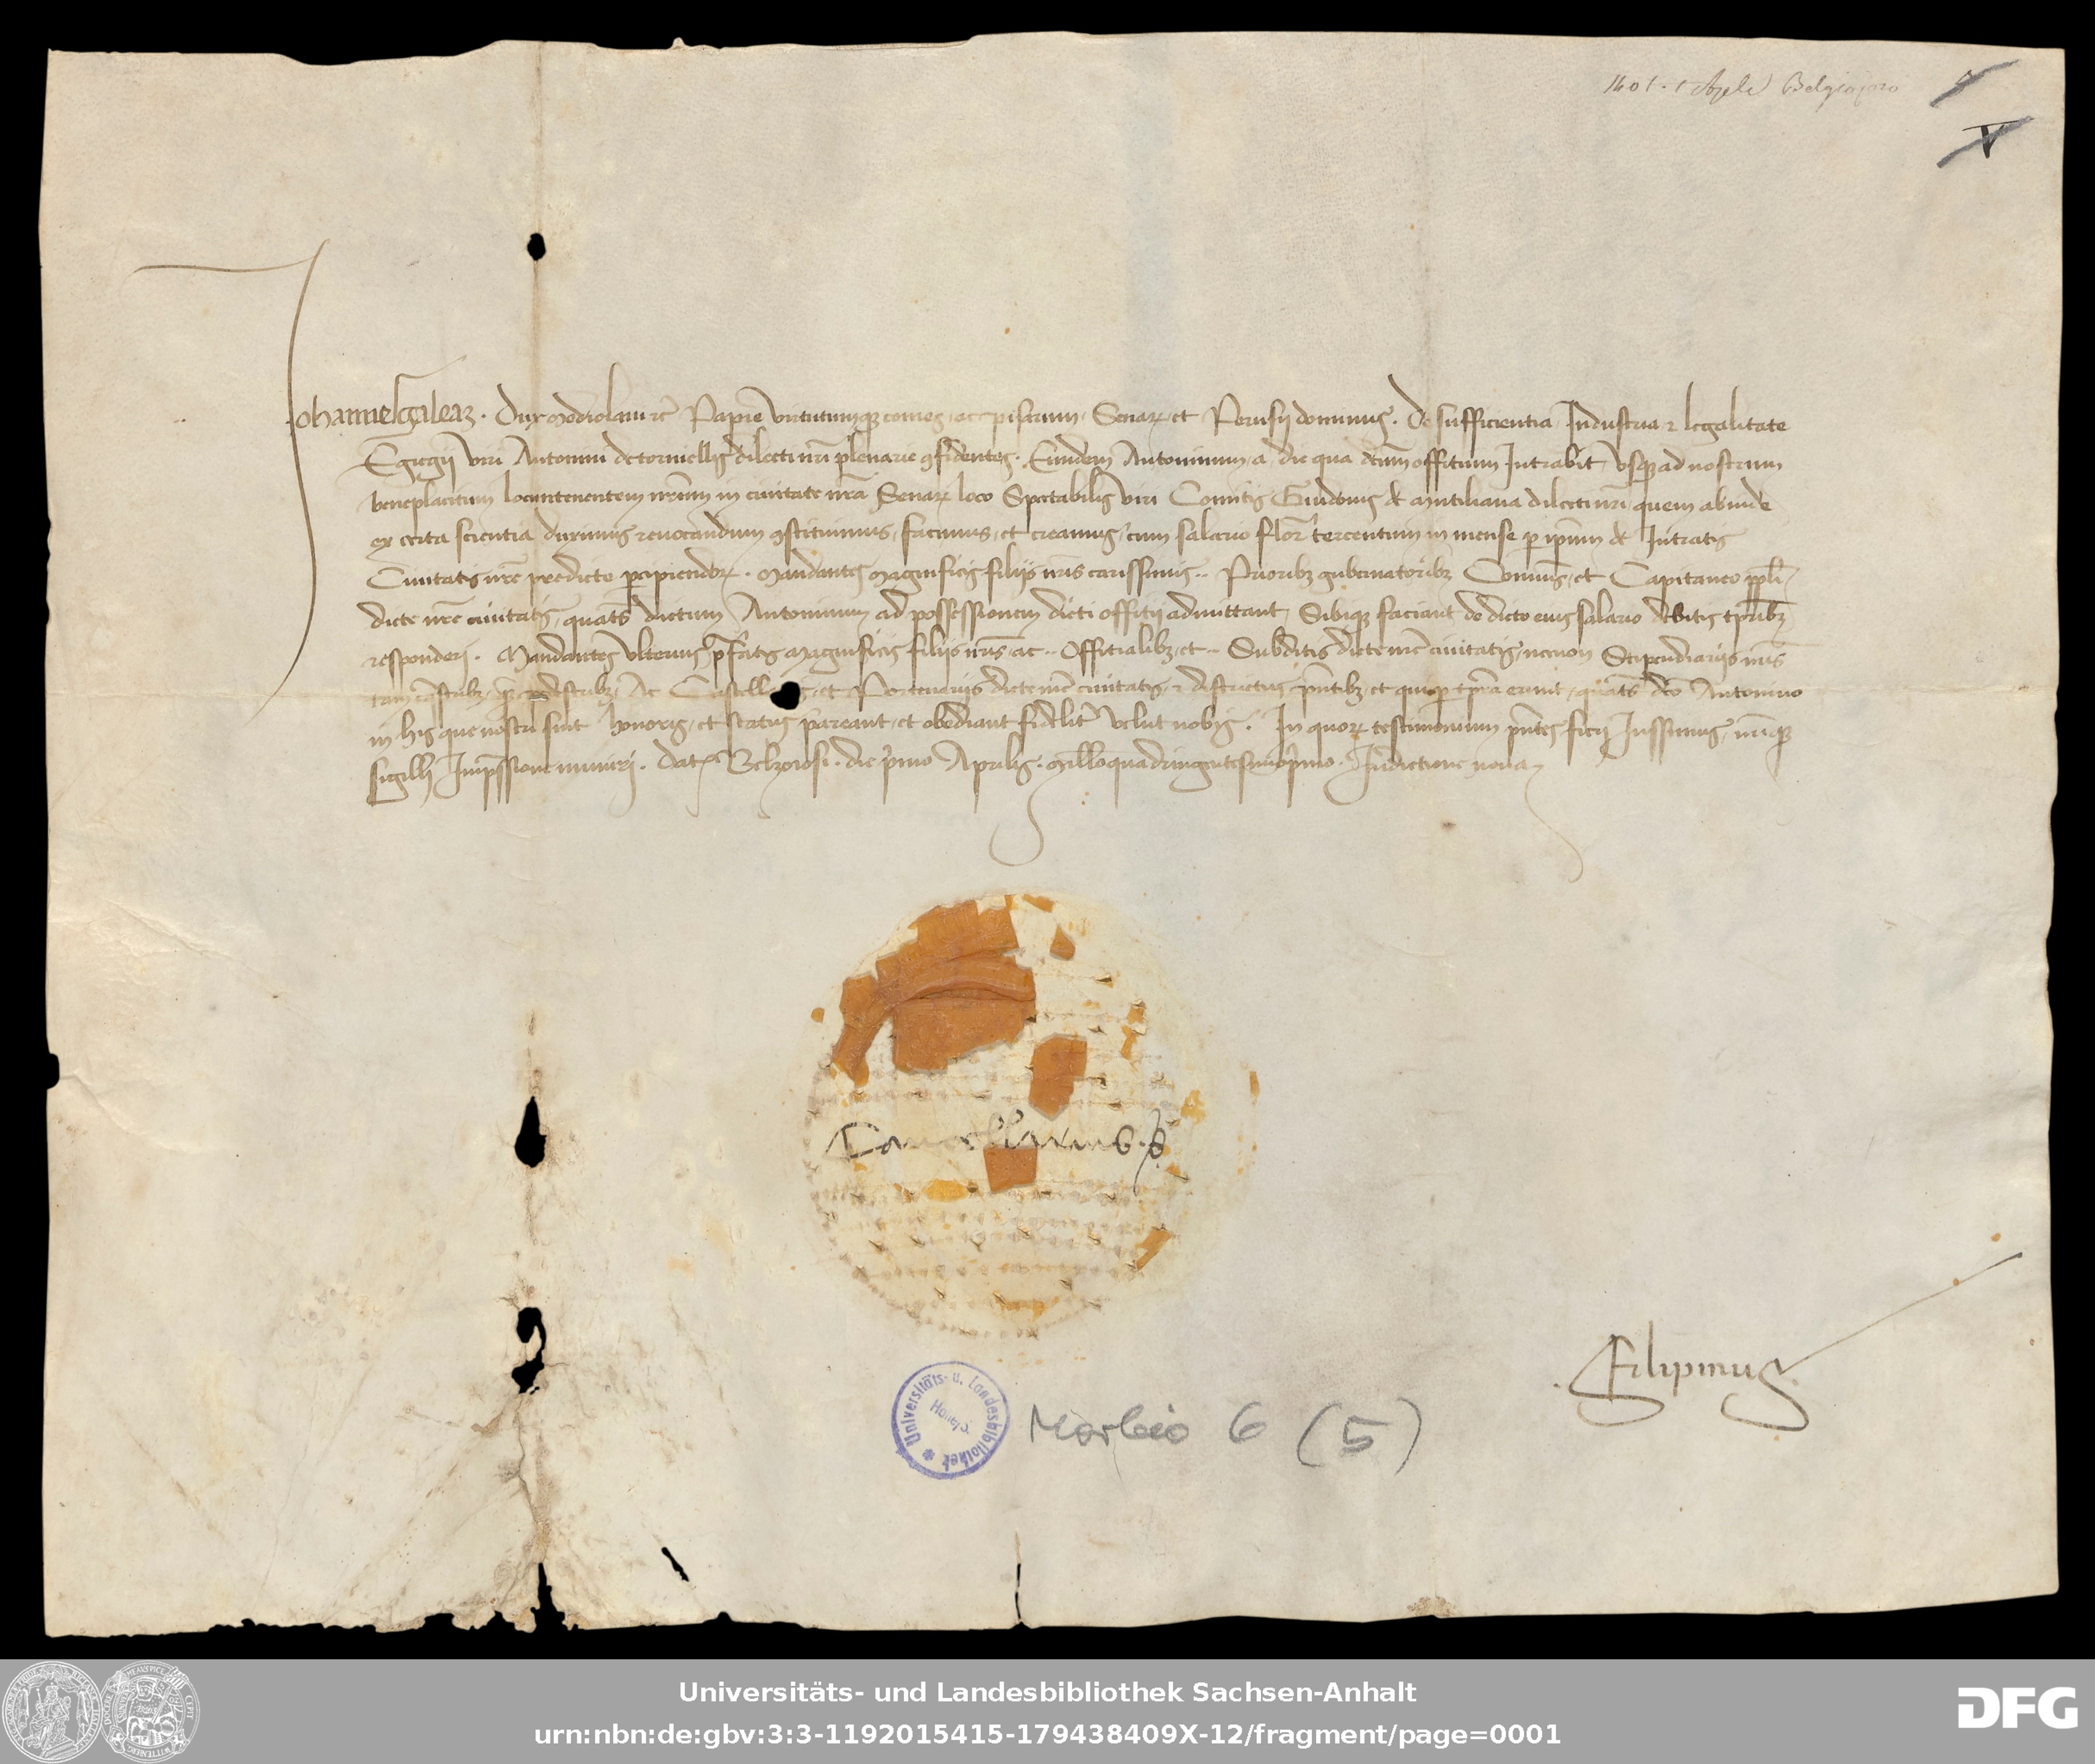 1401. 1 Aple Belgiojoso
V
Johannesgaleaz. Dux Mediolani ꝛc̄ Papie Virtutumqꝫ comes, ac pisarum, Senaꝝ et Perusij dominus. De sufficientia Industria ⁊ legalitate
Egregij viri Antonini de torniellis dilecti nr̄i plenarie ꝯfidentes. Eundem Antoninum, a die qua dictum offitium Intrabit, vsqꝫ ad nostrum
beneplacitum locuntenentem nr̄um in ciuitate nr̄a Senaꝝ loco Spectabilis viri Comitis Guidonis de Mutiliana dilecti nr̄i, quem abinde
ex certa scientia duximus reuocandum ꝯstituimus, facimus, et creamus, cum salario flor̄ tercentum in mense ꝑ ip̄um de Intratis
Ciuitatis nr̄e predicte ꝑcipiendoꝝ. Mandantes Magnificis filijs nr̄is carissimis .. Prioribꝫ gubernatoribꝫ Comunis, et Capitaneo pp̄li
dicte nr̄e ciuitatis, quatꝰ dictum Antoninum ad possessionem dicti offitij admittant, Sibiqꝫ faciant de dicto eius salario debitis tp̄ribꝫ
responderi. Mandantes vlterius p̄fatis Magnificis filijs nr̄is, ac .. Offitialibꝫ, et .. Subditis dicte nr̄e ciuitatis, necnon Stipendiarijs nr̄is
tam eq̄stribꝫ, q̄ pedestribꝫ, Ac Castell et Portenarijs dicte nr̄e ciuitatis, ⁊ districtus p̄ntibꝫ et qui ꝓ tp̄ra erunt, quatꝰ dc̄o Antonino
in his que nostri sint honoris, et status pareant, et obediant fideliter velut nobis. In quoꝝ testimonium p̄ntes fieri Iussimus, nr̄iqꝫ
sigilli Impressione muniri. Dat̄ Belzoiosi. die primo Aprilis. Mill̄o quadringentesimoprimo. Indictione nona
Cancellarius. ss
Filipinus
Universitäts- u. Landesbibliothek
Halle/S
Morbio 6 (5)
Universitäts- und Landesbibliothek Sachsen-Anhalt
urn:nbn:de:gbv:3:3-1192015415-179438409X-12/fragment/page=0001
DFG